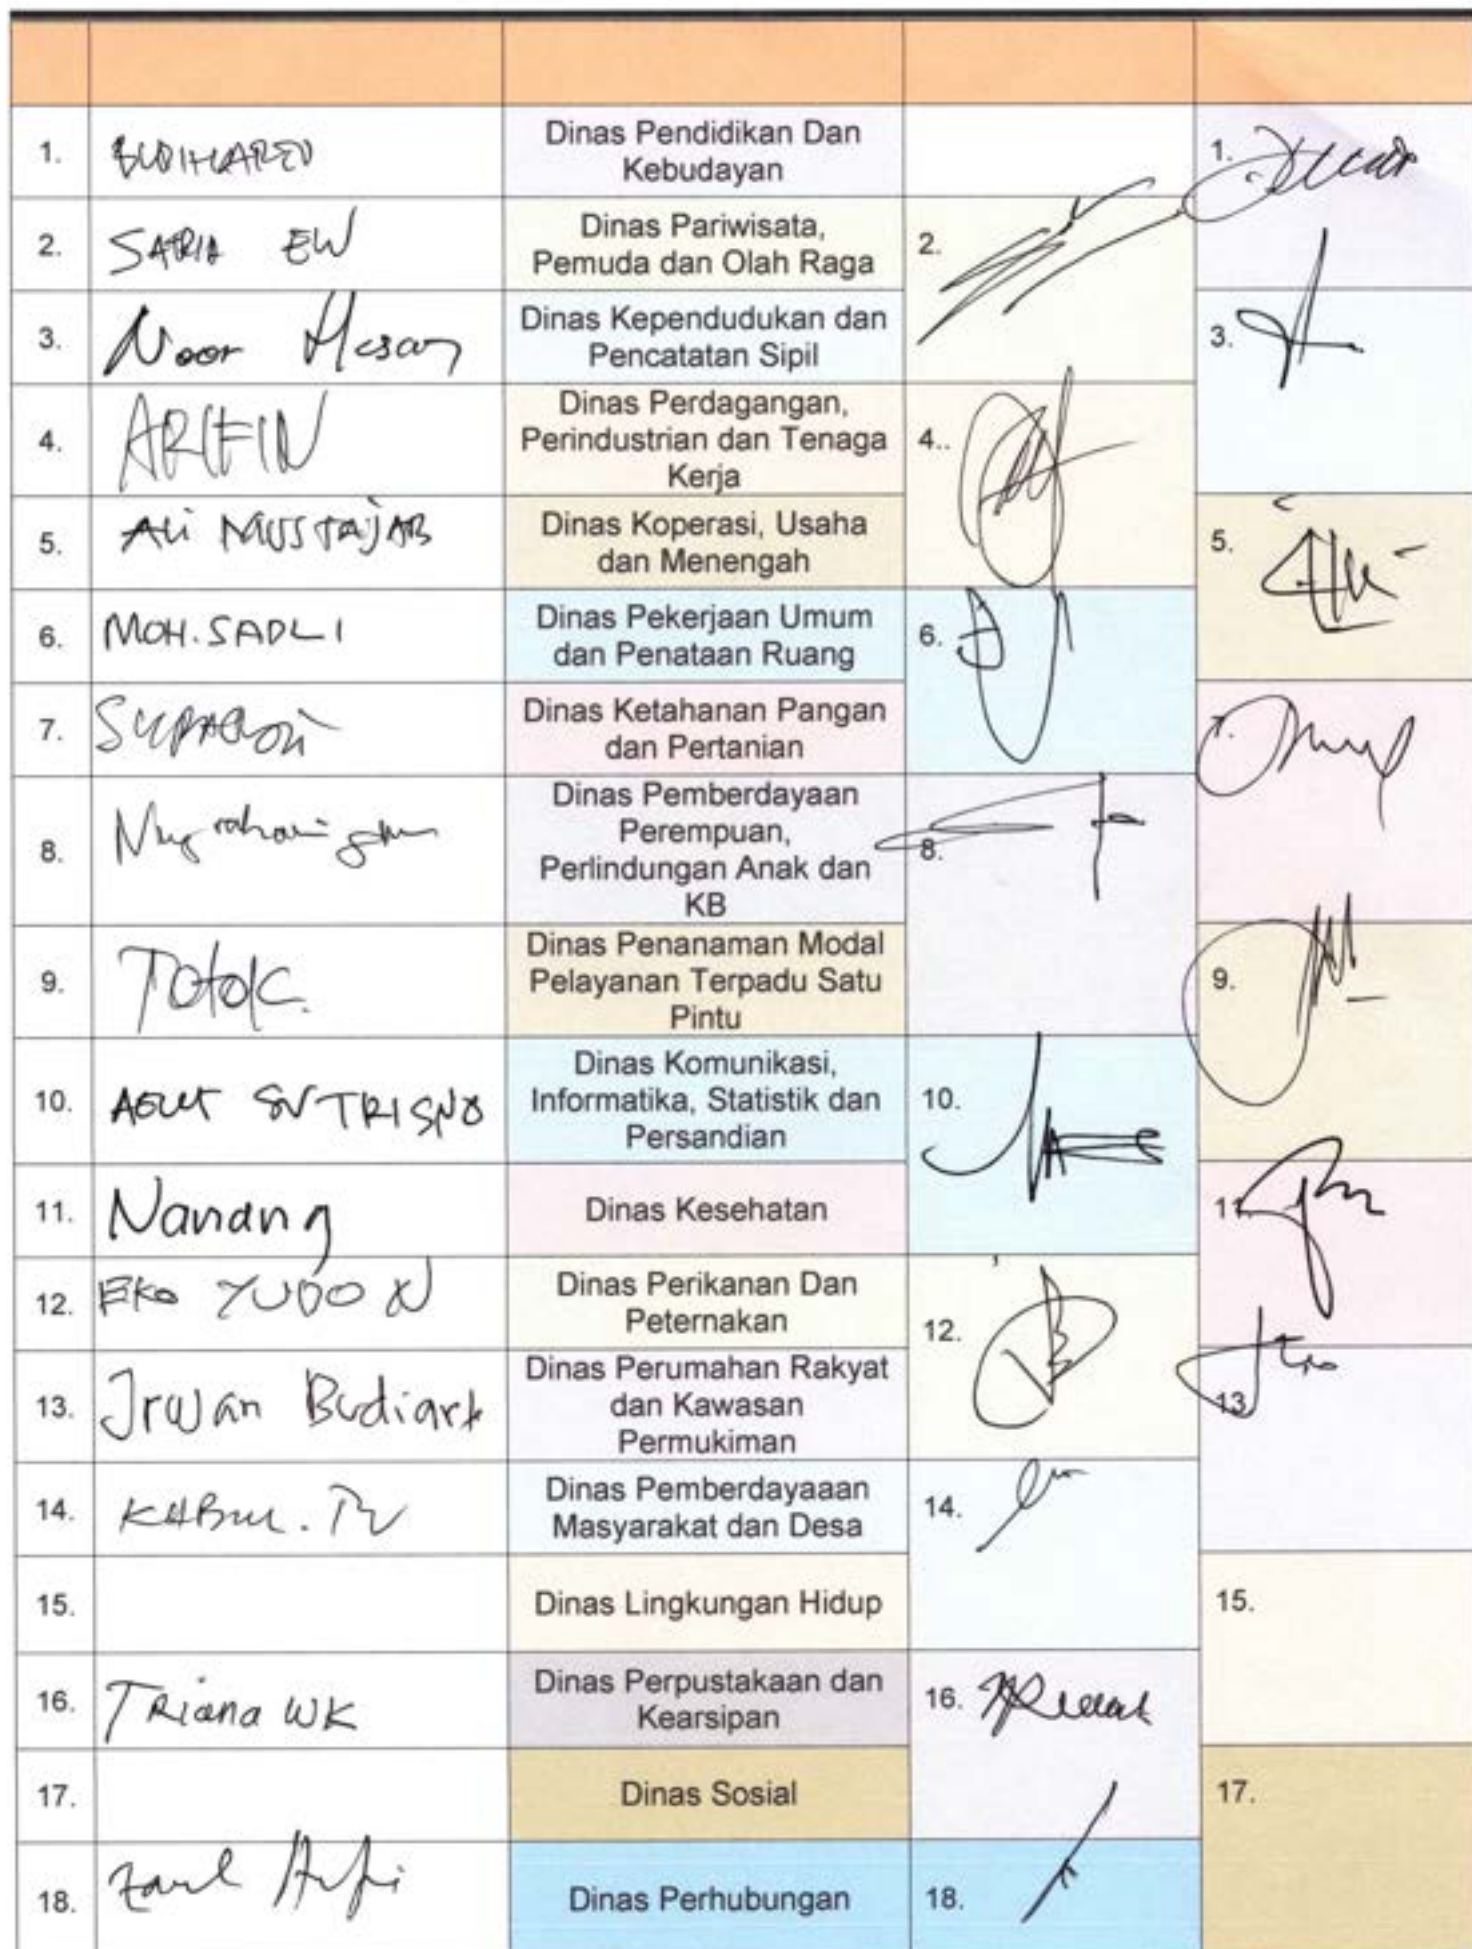 1.
Dinas Pendidikan Dan
Kebudayan
1.
2.
SATRIA EW
Dinas Pariwisata,
Pemuda dan Olah Raga
2.
3.
Noor Hasan
Dinas Kependudukan dan
Pencatatan Sipil
3.
4.
ARIFIN
Dinas Perdagangan,
Perindustrian dan Tenaga
Kerja
4..
5.
ALi MUSTAJAB
Dinas Koperasi, Usaha
dan Menengah
5.
6.
MOH.SADLI
Dinas Pekerjaan Umum
dan Penataan Ruang
6.
7.
Dinas Ketahanan Pangan
dan Pertanian
7.
8.
Dinas Pemberdayaan
Perempuan,
Perlindungan Anak dan
KB
8.
9.
Totok.
Dinas Penanaman Modal
Pelayanan Terpadu Satu
Pintu
9.
10.
SUTRISNO
Dinas Komunikasi,
Informatika, Statistik dan
Persandian
10.
11.
Nanang
Dinas Kesehatan
11.
12.
EKo YUDO N
Dinas Perikanan Dan
Peternakan
12.
13.
Irwan Budiart
Dinas Perumahan Rakyat
dan Kawasan
Permukiman
13.
14.
Dinas Pemberdayaaan
Masyarakat dan Desa
14.
15.
Dinas Lingkungan Hidup
15.
16.
TRiana WK
Dinas Perpustakaan dan
Kearsipan
16.
17.
Dinas Sosial
17.
18.
Dinas Perhubungan
18.